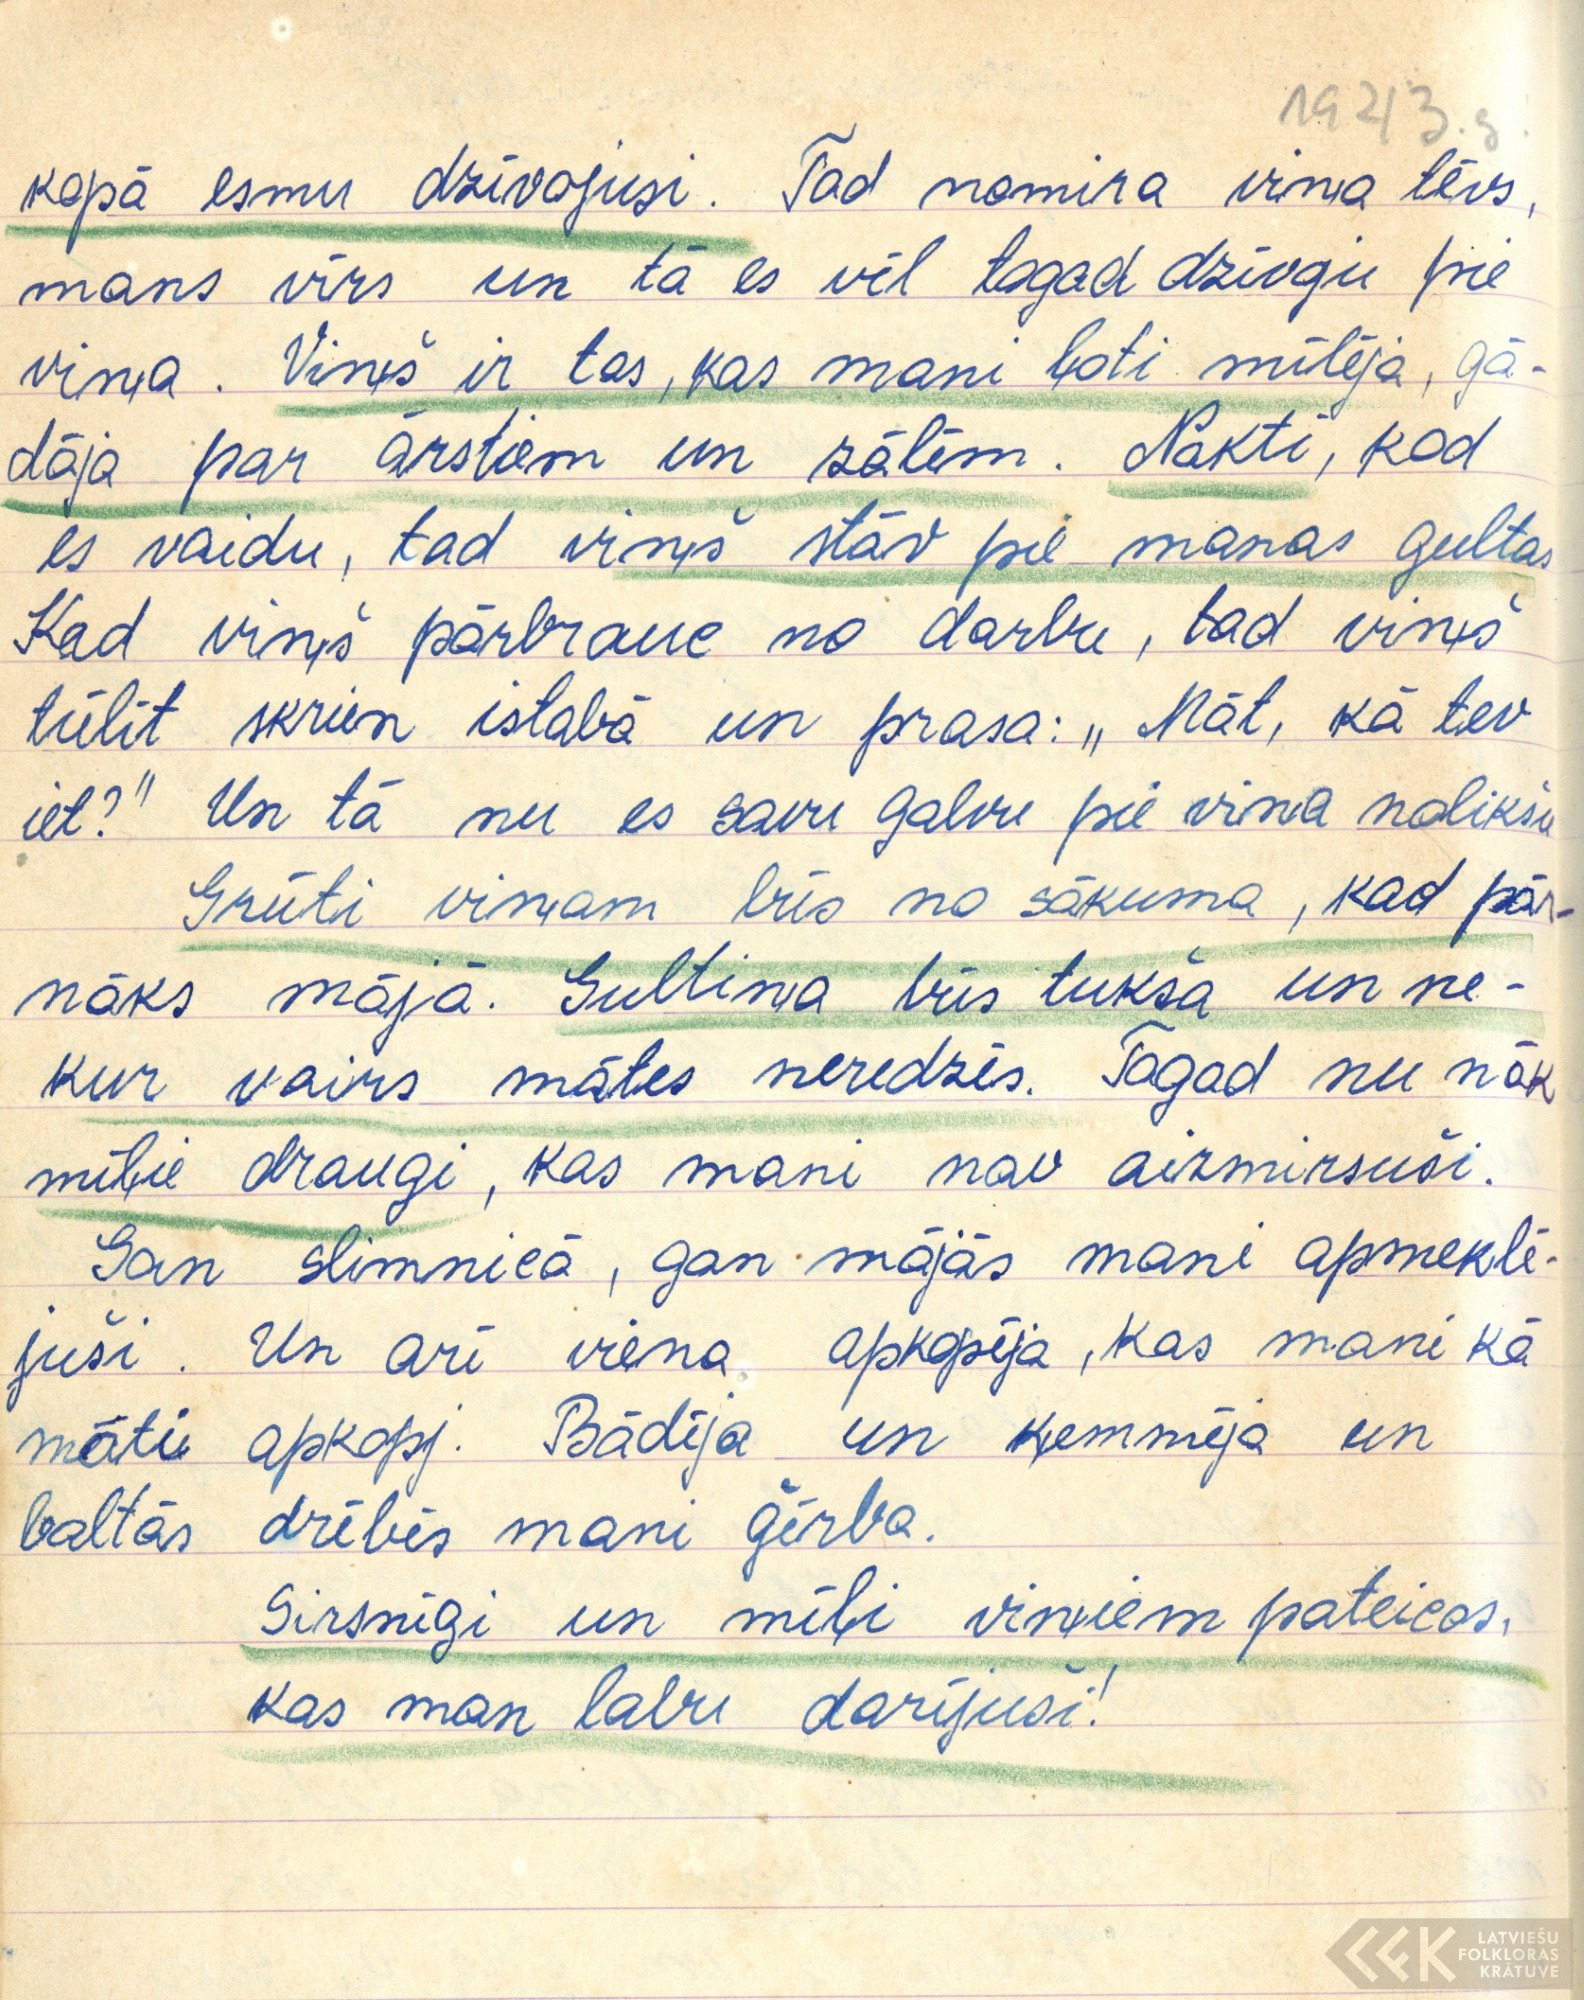 1943.g.
kopā esmu dzīvojusi. Tad nomira viņa tēvs,
mans vīrs un tā es vēl tagad dzīvoju pie
viņa. Viņš ir tas, kas mani ļoti mīlēja, gā-
dāja par ārstiem un zālēm. Naktī, kad
es vaidu, tad viņš stāv pie manas gultas
Kad viņš pārbrauc no darbu, tad viņš
tūlīt skrien istabā un prasa: „Māt, kā tev
iet?" Un tā nu es savu galvu pie viņa nolikšu
Grūti viņam būs no sākuma, kad pār-
nāks mājā. Gultiņa būs tukša un ne-
kur vairs mātes neredzēs. Tagad nu nāk
mīļie draugi, kas mani nav aizmirsuši.
Gan slimnīcā, gan mājās mani apmeklē-
juši. Un arī viena apkopēja, kas mani kā
māti apkopj. Bādīja un ķemmēja un
baltās drēbēs mani ģērba.
Sirsnīgi un mīļi viņiem pateicos,
kas man labu darījuši!
LATVIEŠU
FOLKLORAS
KRĀTUVE